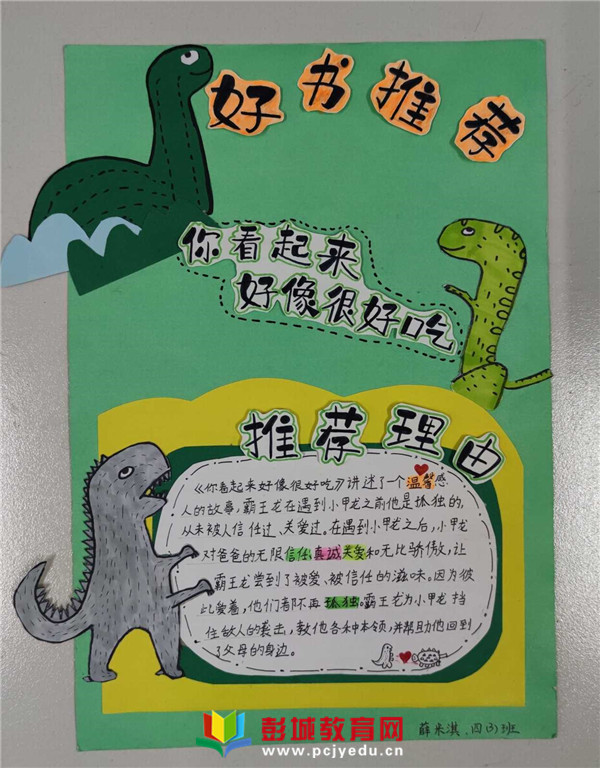 好书推荐
你看起来
好像很好吃
推荐理由
《你看起来好像很好吃》讲述了一个温馨感
人的故事,霸王龙在遇到小甲龙之前他是孤独的,
从未被人信任过、关爱过。在遇到小甲龙之后,小甲龙
对爸爸的无限信任,真诚关爱和无比骄傲,让
霸王龙尝到了被爱、被信任的滋味。因为彼
比爱着,他们都不再孤独。霸王龙为小甲龙挡
住敌人的袭击,教他各种本领,并帮助他回到
了父母的身边。
薛米淇.四(3)班
彭城教育网
www.pcjyedu.cn